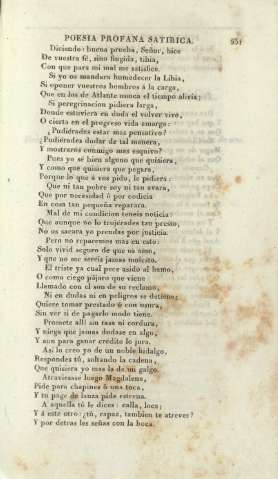 POESIA PROFANA SATÍRICA. 951
Diciendo: buena prueba, Señor, hice
De vuestra fé, sino fingida, tibia,
Con que para mi mal me satisfice.
Si yo os mandara humedecer la Libia,
Si oponer vuestros hombros á la carga,
Que en los de Atlante nunca el tiempo alivia;
Si peregrinacion pidiera larga,
Donde estuviera en duda el volver vivo,
O cierta en el progreso vida amarga:
¿Pudierades estar mas pensativo?
¿Pudierades dudar de tal manera,
Y mostraros conmigo mas esquivo?
Pues yo sé bien alguno que quisiera,
Y como que quisiera que pagara,
Porque lo que á vos pido, le pidiera:
Que ni tan pobre soy ni tan avara,
Que por necesidad ó por codicia
En cosa tan pequeña reparara.
Mal de mi condicion teneis noticia:
Que aunque no lo trujerades tan preciso,
No os sacara yo prendas por justicia.
Pero no reparemos mas en esto:
Solo vivid seguro de que os amo,
Y que no me sereis jamas molesto.
El triste ya cual pece asido al hamo,
O como ciego pájaro que viene
Llamado con el son de su reclamo,
Ni en dudas ni en peligros se detiene;
Quiere tomar prestado ó con usura,
Sin ver si de pagarlo modo tiene.
Promete allí sin tasa ni cordura,
Y niega que jamas dudase en algo,
Y aun para ganar crédito lo jura.
Así lo creo yo de un noble hidalgo,
Respondes tú, soltando la cadena,
Que quisiera yo mas la de un galgo.
Atraviesase luego Magdalena,
Pide para chapines ó una toca,
Y tu page de lanza pide estrena.
A aquella tú le dices: calla, loca;
Y á este otro: ¿tú, rapaz, tambien te atreves?
Y por detras les señas con la boca.